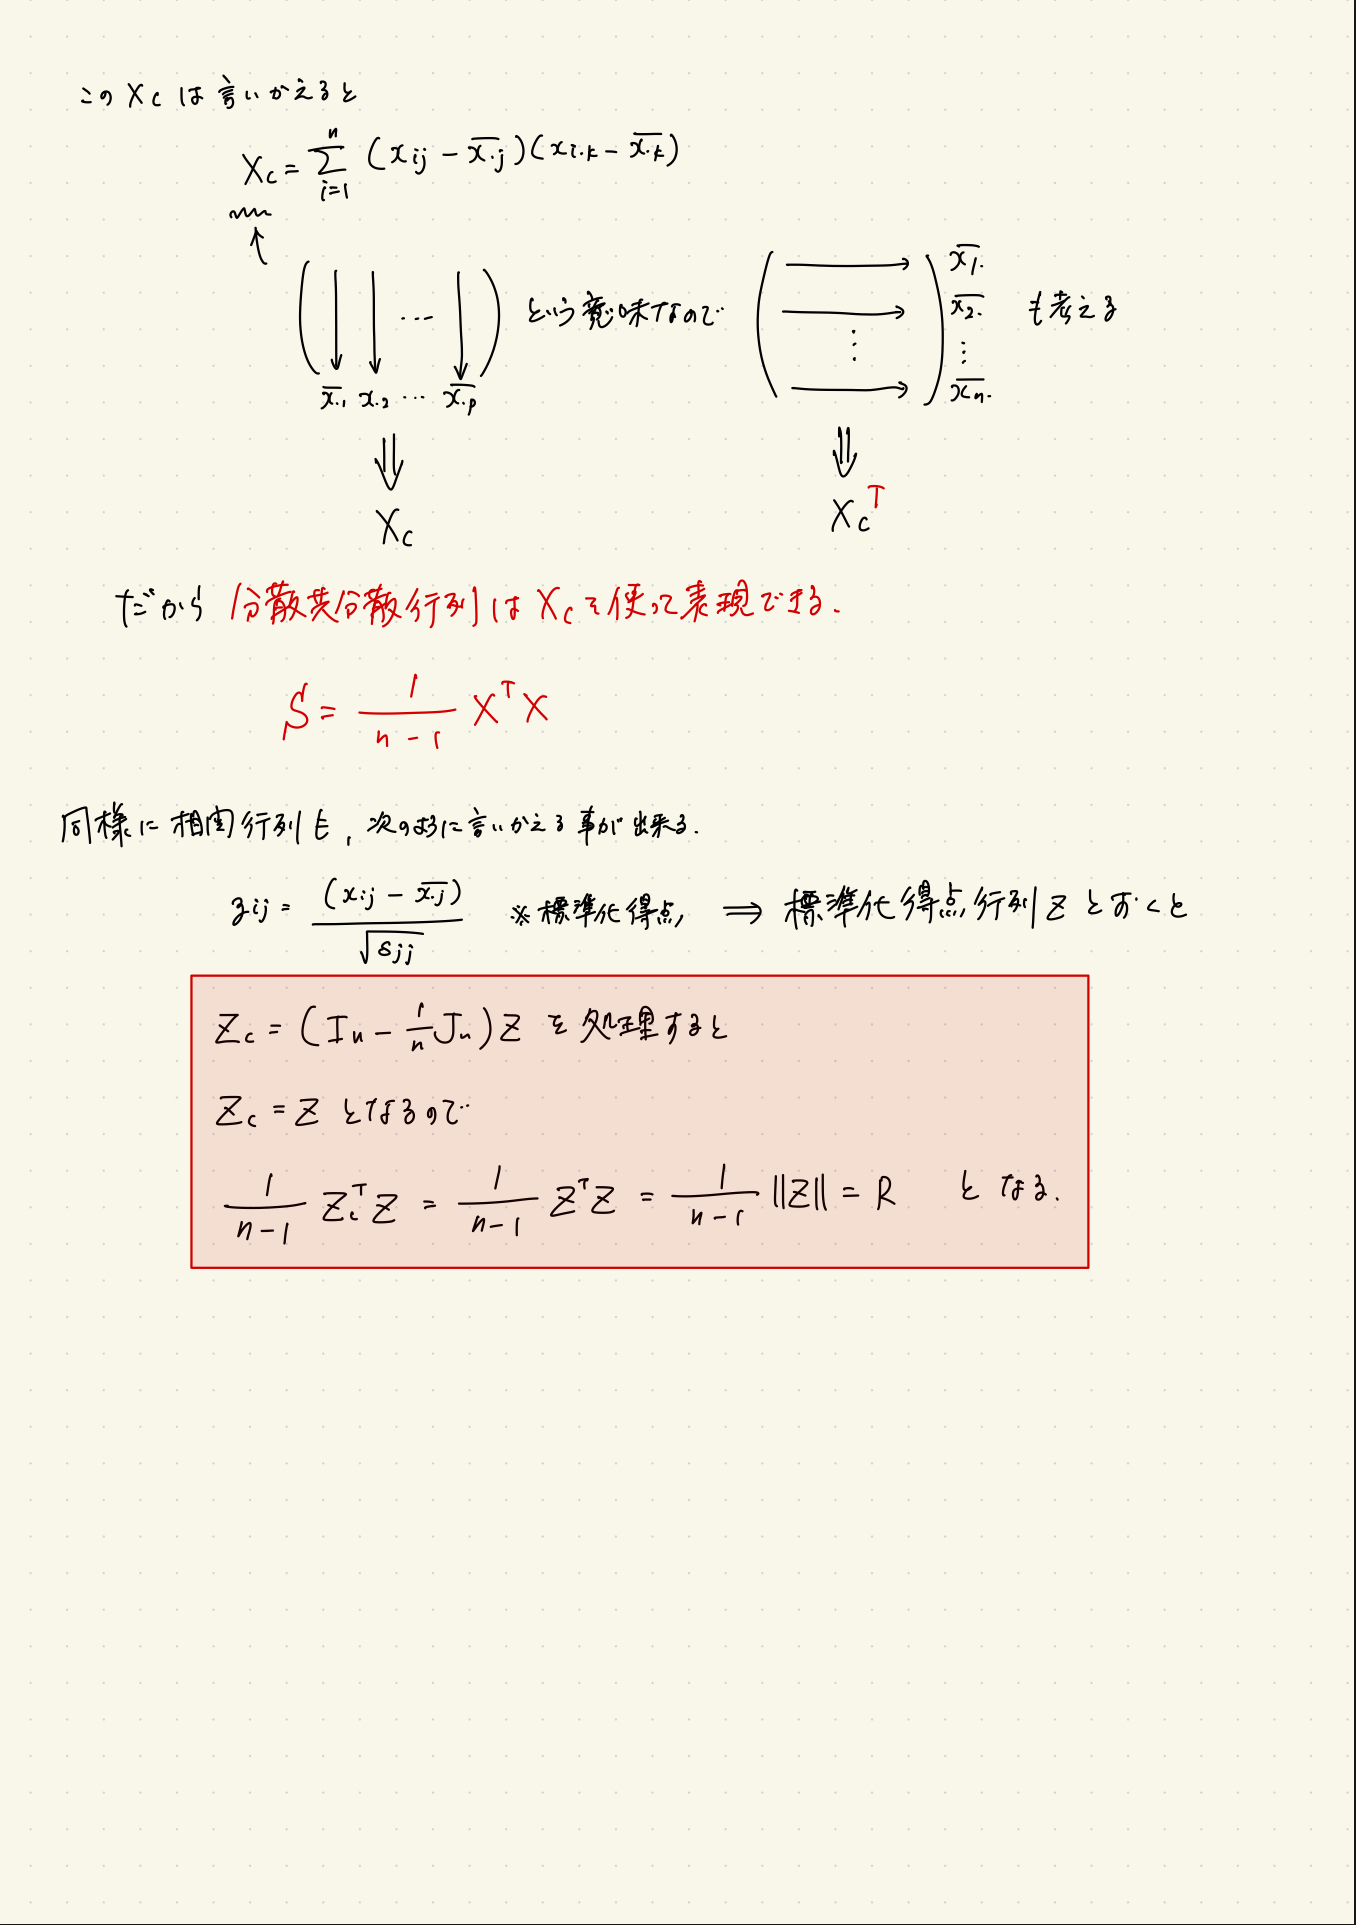 このXcは言いかえると
Xc = Σ_{i=1}^{n} (xij − x̄.j)(xi.k − x̄.k)
↑
( ↓ ↓ … ↓ ) という意味なので ( → → ⋮ → ) x̄1. x̄2. ⋮ x̄n. も考える
x̄.1 x.2 … x̄.p
⇓ ⇓
Xc Xc^T
だから 分散共分散行列はXcを使って表現できる.
S = \frac{1}{n-1} X^T X
同様に相関行列も, 次のように言いかえる事が出来る.
zij = \frac{(xij − x̄.j)}{\sqrt{sjj}} ※標準化得点 ⇒ 標準化得点行列Zとおくと
Zc = (In − \frac{1}{n}Jn)Z を処理すると
Zc = Z となるので
\frac{1}{n-1} Zc^T Z = \frac{1}{n-1} Z^T Z = \frac{1}{n-1} ||Z|| = R となる.